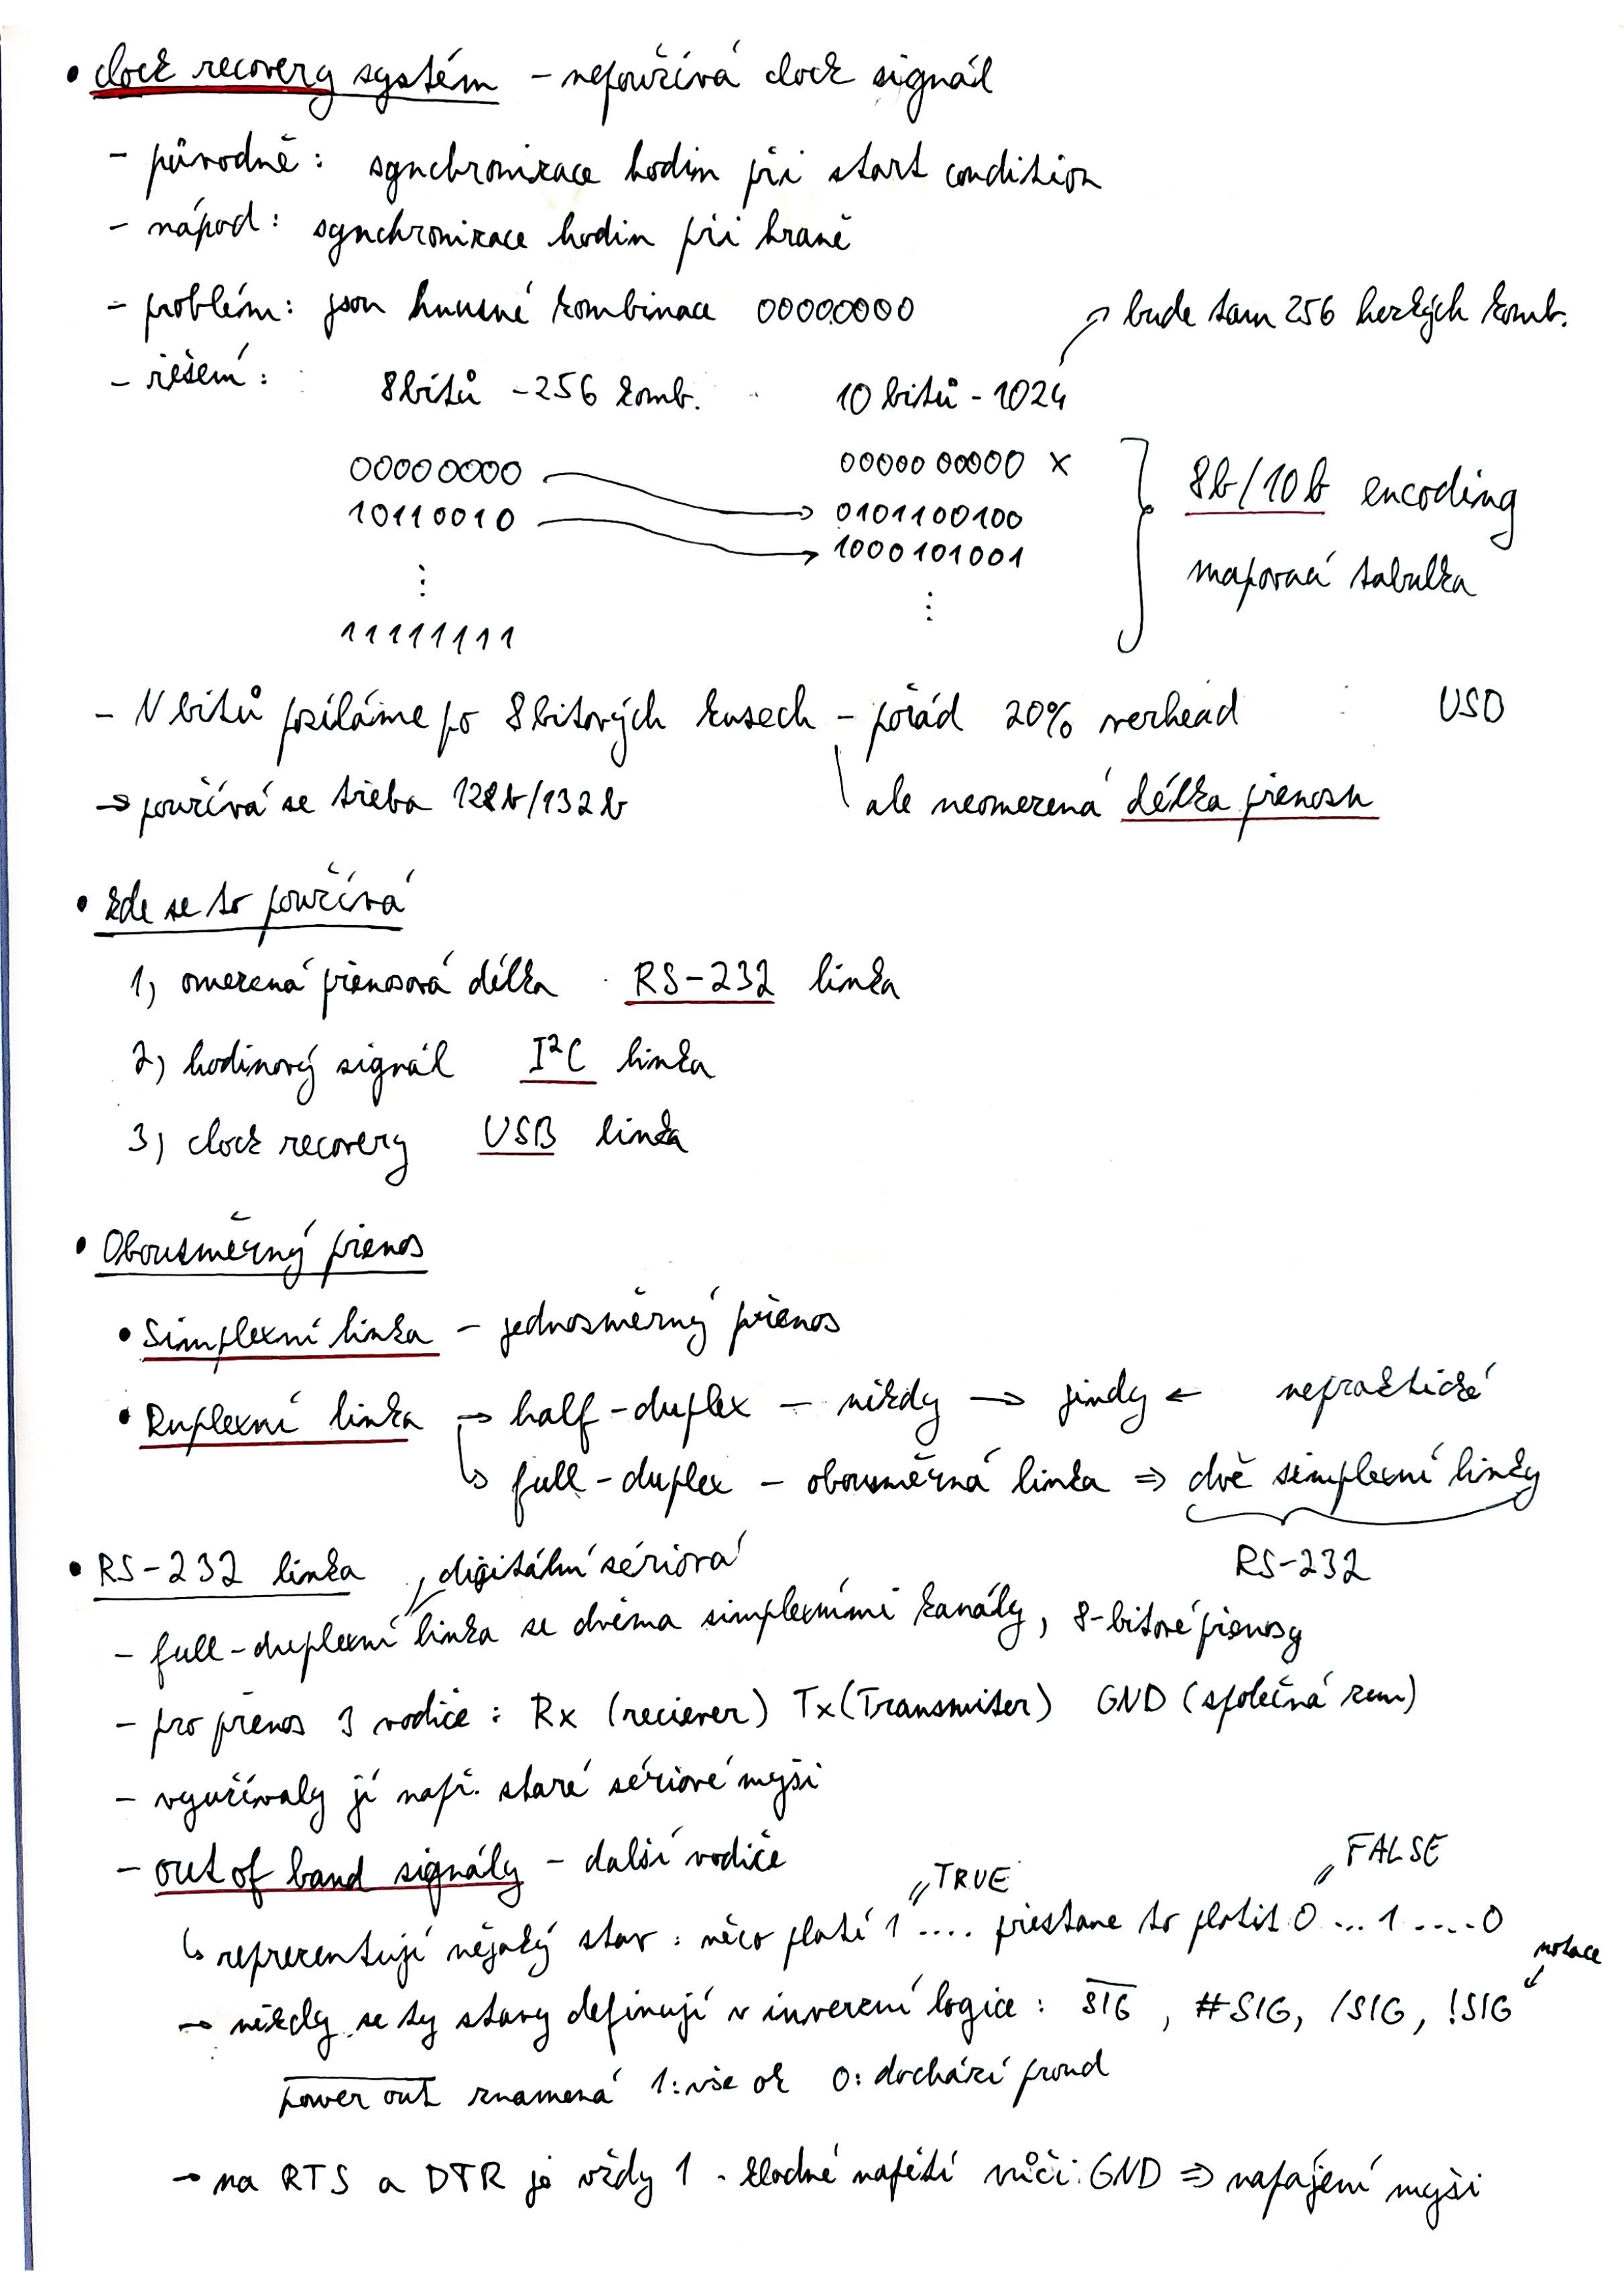 • clock recovery systém – nepoužívá clock signál
– původně: synchronizace hodin při start condition
– nápad: synchronizace hodin při hraně
– problém: jsou hnusné kombinace 00000000
bude tam 256 hezkých komb.
– řešení: 8 bitů – 256 komb. 10 bitů – 1024
00000000 00000 00000 x
10110010 0101100100
1000101001
⋮ ⋮
11111111
8b/10b encoding
mapovací tabulka
– N bitů posíláme po 8 bitových kusech – pořád 20% overhead
→ používá se třeba 128b/132b ale neomezená délka přenosu
• kde se to používá
1) omezená přenosová délka RS-232 linka
2) hodinový signál I²C linka
3) clock recovery USB linka
• Obousměrný přenos
• Simplexní linka – jednosměrný přenos
• Duplexní linka → half-duplex – někdy → jindy ← nepraktické
↳ full-duplex – obousměrná linka ⇒ dvě simplexní linky
RS-232
• RS-232 linka digitální sériová
– full-duplexní linka se dvěma simplexními kanály, 8-bitové přenosy
– pro přenos 3 vodiče: Rx (reciever) Tx (Transmiter) GND (společná zem)
– využívaly jí např. staré sériové myši
– out of band signály – další vodiče
TRUE FALSE
↳ reprezentují nějaký stav: něco platí 1 .... přestane to platit 0 ... 1 .... 0
notace
→ někdy se ty stavy definují v inverzní logice: S̅I̅G̅, #SIG, /SIG, !SIG
p̅o̅w̅e̅r̅ ̅o̅u̅t̅ znamená 1: vše ok 0: dochází proud
→ na RTS a DTR je vždy 1 – kladné napětí vůči GND ⇒ napájení myši